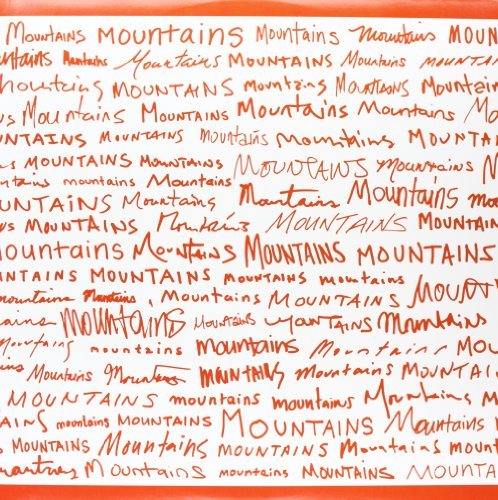 Mountains Mountains Mountains Mountains MOUN
untains Mountains Mountains MOUNTAINS Mountains MOUNTAIN
Mountains MOUNTAINS Mountains MOUNTAINS Mountain
us Mountains MOUNTAINS Mountains Mountains M
OUNTAINS MOUNTAINS Mountains Mountains MOUNTA
ns MOUNTAINS MOUNTAINS MOUNTAINS Mountains
untains mountains Mountains Mountains Mountains mo
UNTAINS Mountains Mountains MOUNTAINS MOUNTAIN
ountains Mountains MOUNTAINS MOUNTAINS
AINS MOUNTAINS MOUNTAINS mountains MOUNT
mountains Mountains, Mountains MOUNTAINS
ains mountains MOUNTAINS MOUNTAINS Mountains
Mountains mountains mountains Mountains Mountains
ins Mountains Mountains mountains mountains MOUNTAINS
MOUNTAINS mountains mountains Mountains Moun
AINS mountains MOUNTAINS MOUNTAINS Mountains
S MOUNTAINS Mountains Mountains Mountains mount
Mountains mountains MOUNTAINS MOUNTA